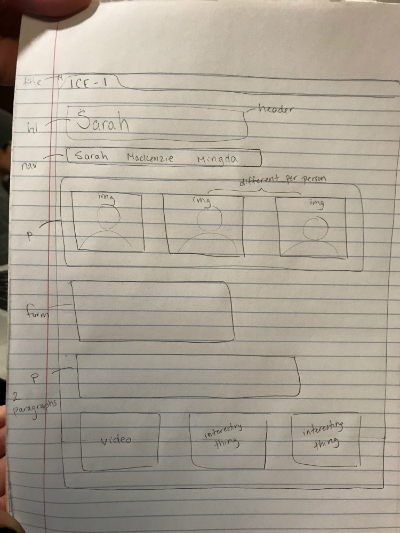 title ICE-1
header
h1 Sarah
nav Sarah Mackenzie Mingda
different per person
img img img
p
form
p
2 paragraphs
video interesting thing interesting thing